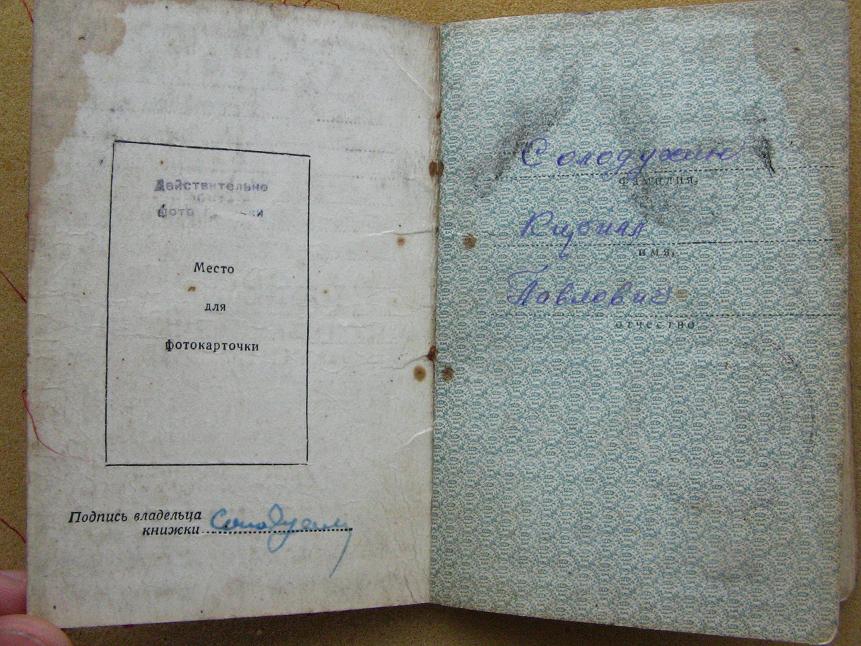 Действительно
фото
Место
для
фотокарточки
Подпись владельца
книжки Солодухин
Солодухин
фамилия,
имя,
Павлович
отчество